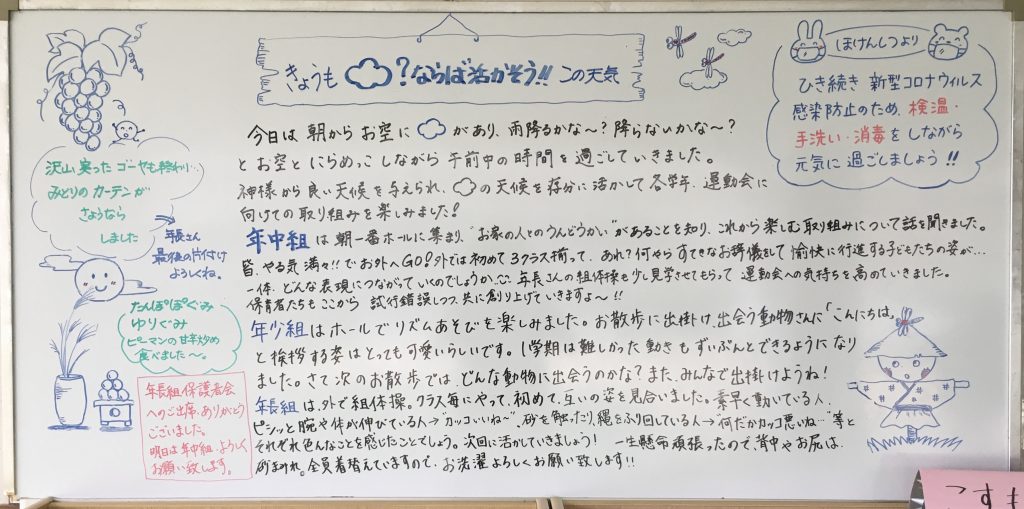 きょうも ☁?ならば活かそう!! この天気
今日は 朝から お空に ☁ があり、雨降るかな〜?降らないかな〜?
と お空と にらめっこ しながら 午前中の時間を過ごしていきました。
神様から良い天候を与えられ、☁の天候を存分に活かして各学年、運動会に
向けての取り組みを楽しみました!
年中組は朝一番ホールに集まり、"お家の人とのうんどうかい"があることを知り、これから楽しむ取り組みについて話を聞きました。
皆、やる気満々!!でお外へGO!外では初めて3クラス揃って、あれ?何やらすてきなお辞儀をして愉快に行進する子どもたちの姿が…
一体、どんな表現につながっていくのでしょうか…。年長さんの組体操も少し見学させてもらって運動会への気持ちを高めていきました。
保育者たちもここから試行錯誤しつつ、共に創り上げていきますよ〜!!
年少組はホールでリズムあそびを楽しみました。お散歩に出掛け、出会う動物さんに「こんにちは」
と挨拶する姿はとっても可愛いらしいです。1学期は難しかった動きもずいぶんとできるようになり
ました。さて次のお散歩では、どんな動物に出会うのかな?また、みんなで出掛けようね!
年長組は、外で組体操。クラス毎にやって、初めて、互いの姿を見合いました。素早く動いている人、
ピシッと腕や体が伸びている人→"カッコいいね〜"、砂を触ったり、縄をふり回している人→"何だかカッコ悪いね…"等と
それぞれ色んなことを感じたことでしょう。次回に活かしていきましょう!一生懸命頑張ったので、背中やお尻は、
砂まみれ。全員着替えていますので、お洗濯よろしくお願い致します!!
ほけんしつより
ひき続き 新型コロナウィルス
感染防止のため、検温・
手洗い・消毒をしながら
元気に過ごしましょう!!
沢山、実った ゴーヤも終わり…
みどりの カーテンが
さようなら
しました
年長さん
最後の片付け
よろしくね。
たんぽぽぐみ
ゆりぐみ
ピーマンの甘辛炒め
食べました〜。
年長組、保護者会
へのご出席、ありがとう
ございました。
明日は年中組、よろしく
お願い致します。
こすも